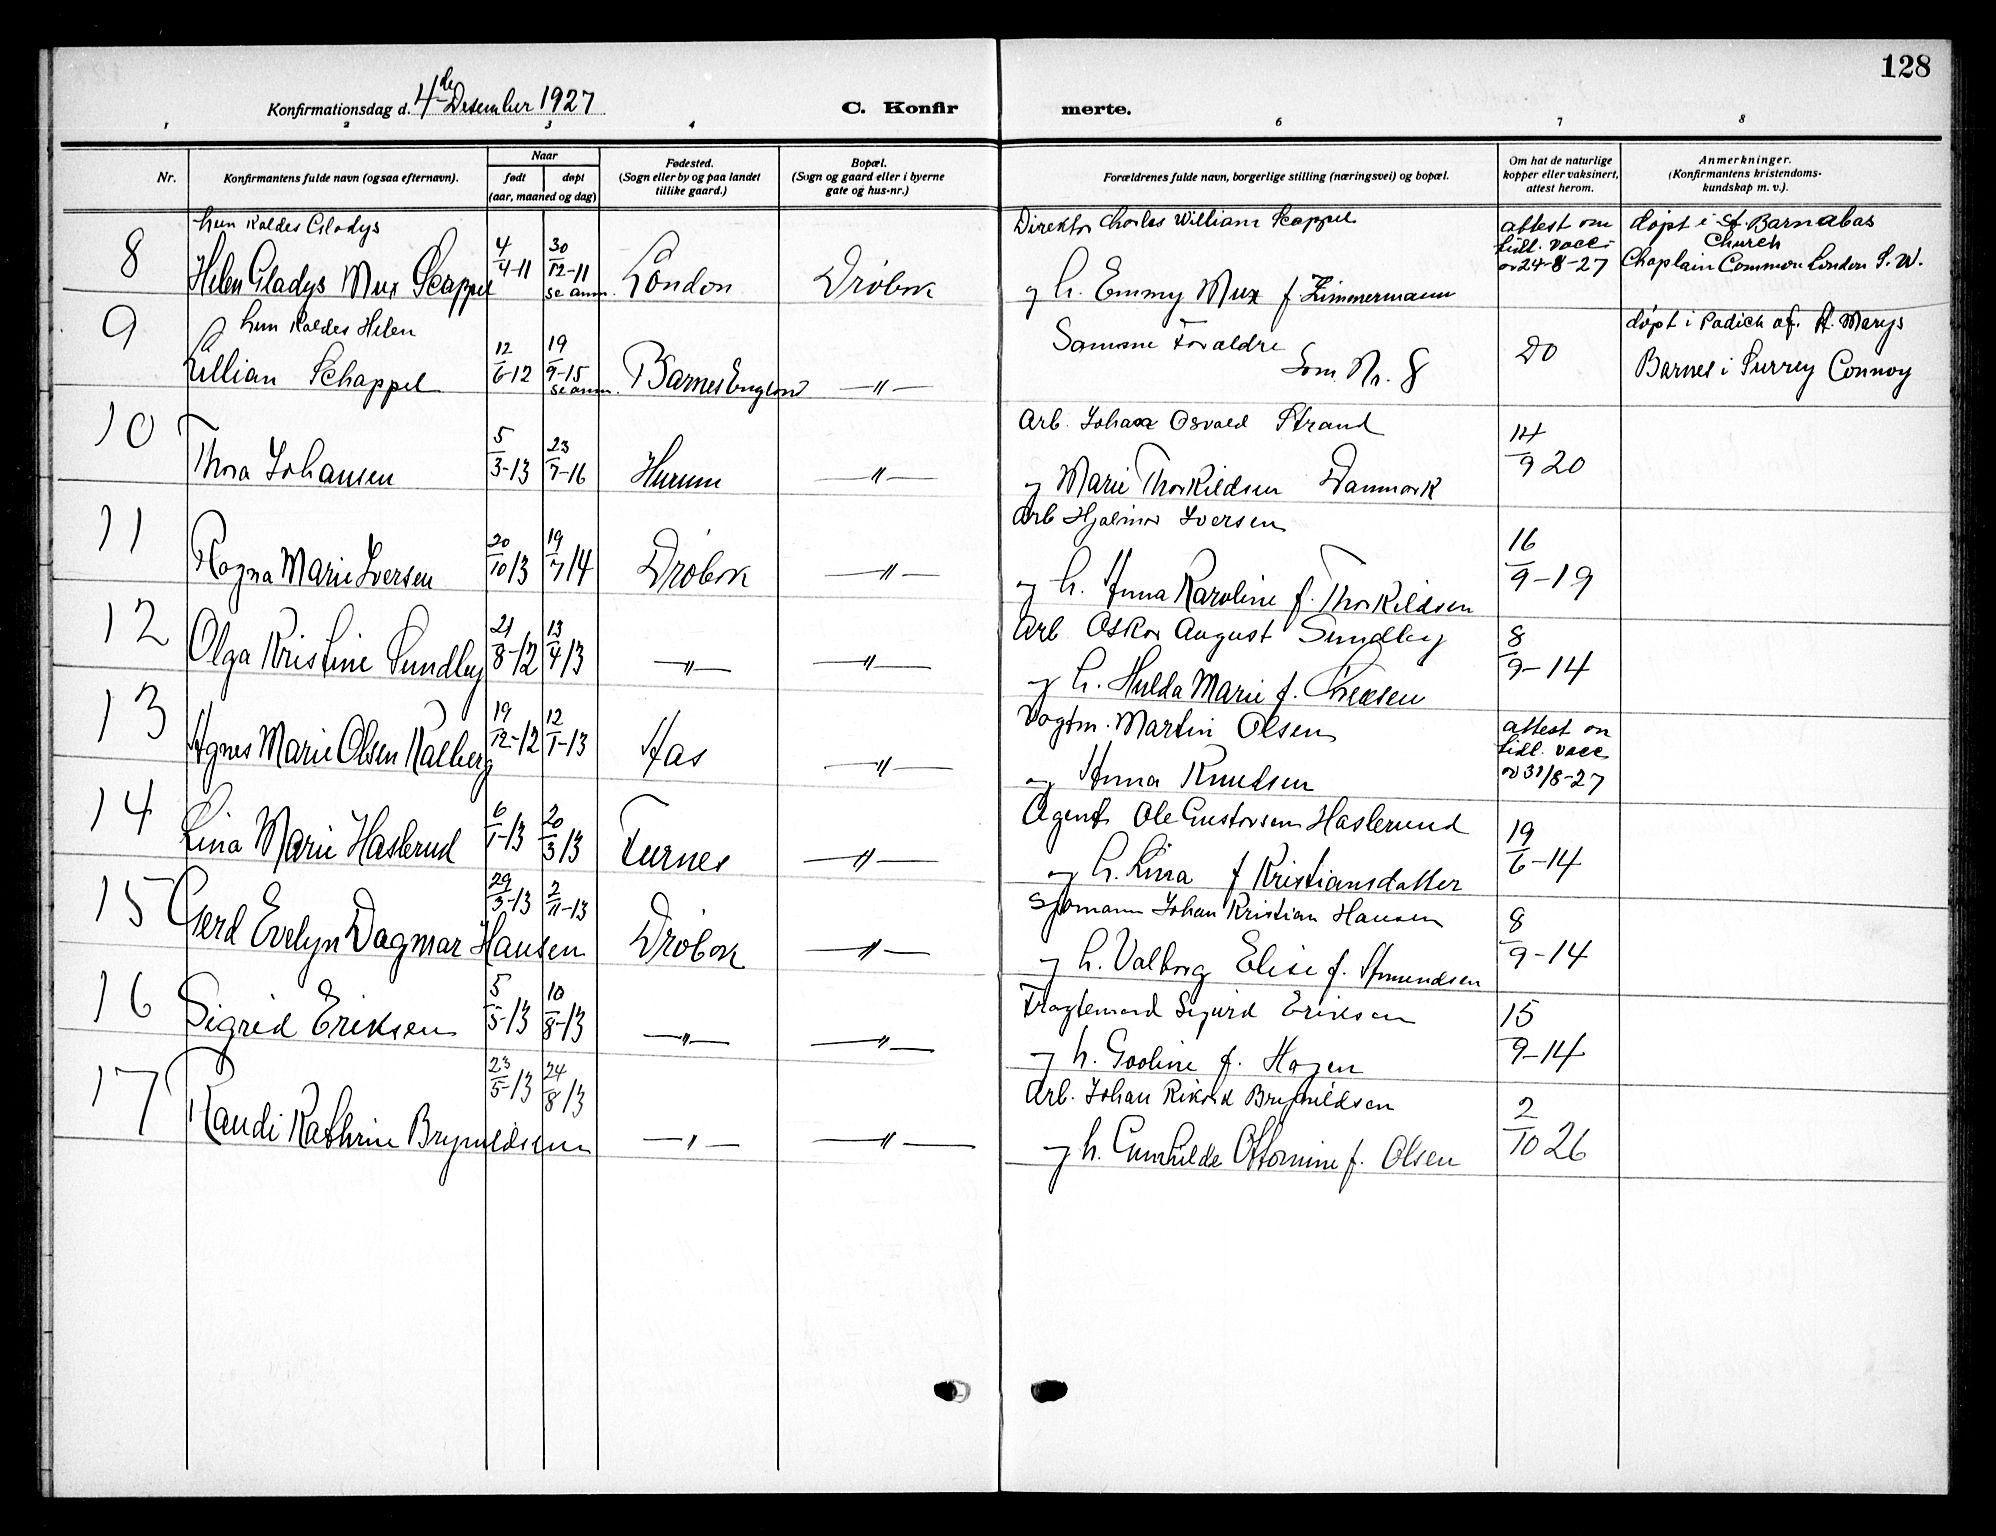 128
Konfirmationsdag d. 4de Desember 1927
C. Konfir merte.
1 2 3 4 6 7 8
Nr.
Konfirmantens fulde navn (ogsaa efternavn).
Naar
født døpt
(aar, maaned og dag)
Fødested.
(Sogn eller by og paa landet
tillike gaard.)
Bopæl.
(Sogn og gaard eller i byerne
gate og hus-nr.)
Forældrenes fulde navn, borgerlige stilling (næringsvei) og bopæl.
Om hat de naturlige
kopper eller vaksinert,
attest herom.
Anmerkninger.
(Konfirmantens kristendoms-
kundskap m. v.).
8
hun kaldes Gladys
Helen Gladys Mux Scappel
4/4-11
30/12-11
se anm.
London
Drøbak
Direktør Charles William Scappel
og h. Emmy Mux f. Zimmermann
attest om
tidl. vacc.
av 24-8-27
døpt i St. Barnabas
Church
Chaplain Common London S. W.
9
hun kaldes Helen
Lillian Schappel
12/6-12
19/9-15
se anm.
Barnes England
—"—
Samme Forældre
som Nr. 8
Do
døpt i Padich af. St. Marys
Barnes i Surrey Connoy
10
Thora Johansen
5/3-13
23/7-16
Hurum
—"—
Arb. Johan Osvald Strand
og Marie Thorkildsen Danmark
14/9 20
11
Ragna Marie Iversen
20/10 13
19/7 14
Drøbak
—"—
Arb Hjalmar Iversen
og h. Anna Karoline f. Thorkildsen
16/9-19
12
Olga Kristine Sundby
21/8-12
13/4 13
—"—
—"—
Arb Oskar August Sundby
og h. Hulda Marie f.
8/9-14
13
Agnes Marie Olsen Kalberg
19/12-12
12/1-13
Aas
—"—
Vagtm. Martin Olsen
og Anna Knudsen
attest om
tidl. vacc
av 31/8-27
14
Lina Marie Haslerud
6/1-13
20/3 13
Furnes
—"—
Agent Ole Gustavsen Haslerud
og h. Lina f Kristiansdatter
19/6-14
15
Gerd Evelyn Dagmar Hansen
29/3-13
2/11-13
Drøbak
—"—
Sjømann Johan Kristian Hansen
og h. Valborg Elise f. Amundsen
8/9-14
16
Sigrid Eriksen
5/5-13
10/8-13
—"—
—"—
Fragtemand Sigurd Eriksen
og h. Gooline f. Hagen
15/9-14
17
Randi Kathrine Brynildsen
23/5-13
24/8 13
—"—
—"—
Arb. Johan Rikard Brynildsen
og h. Gunhilde Ottomine f. Olsen
2/10 26